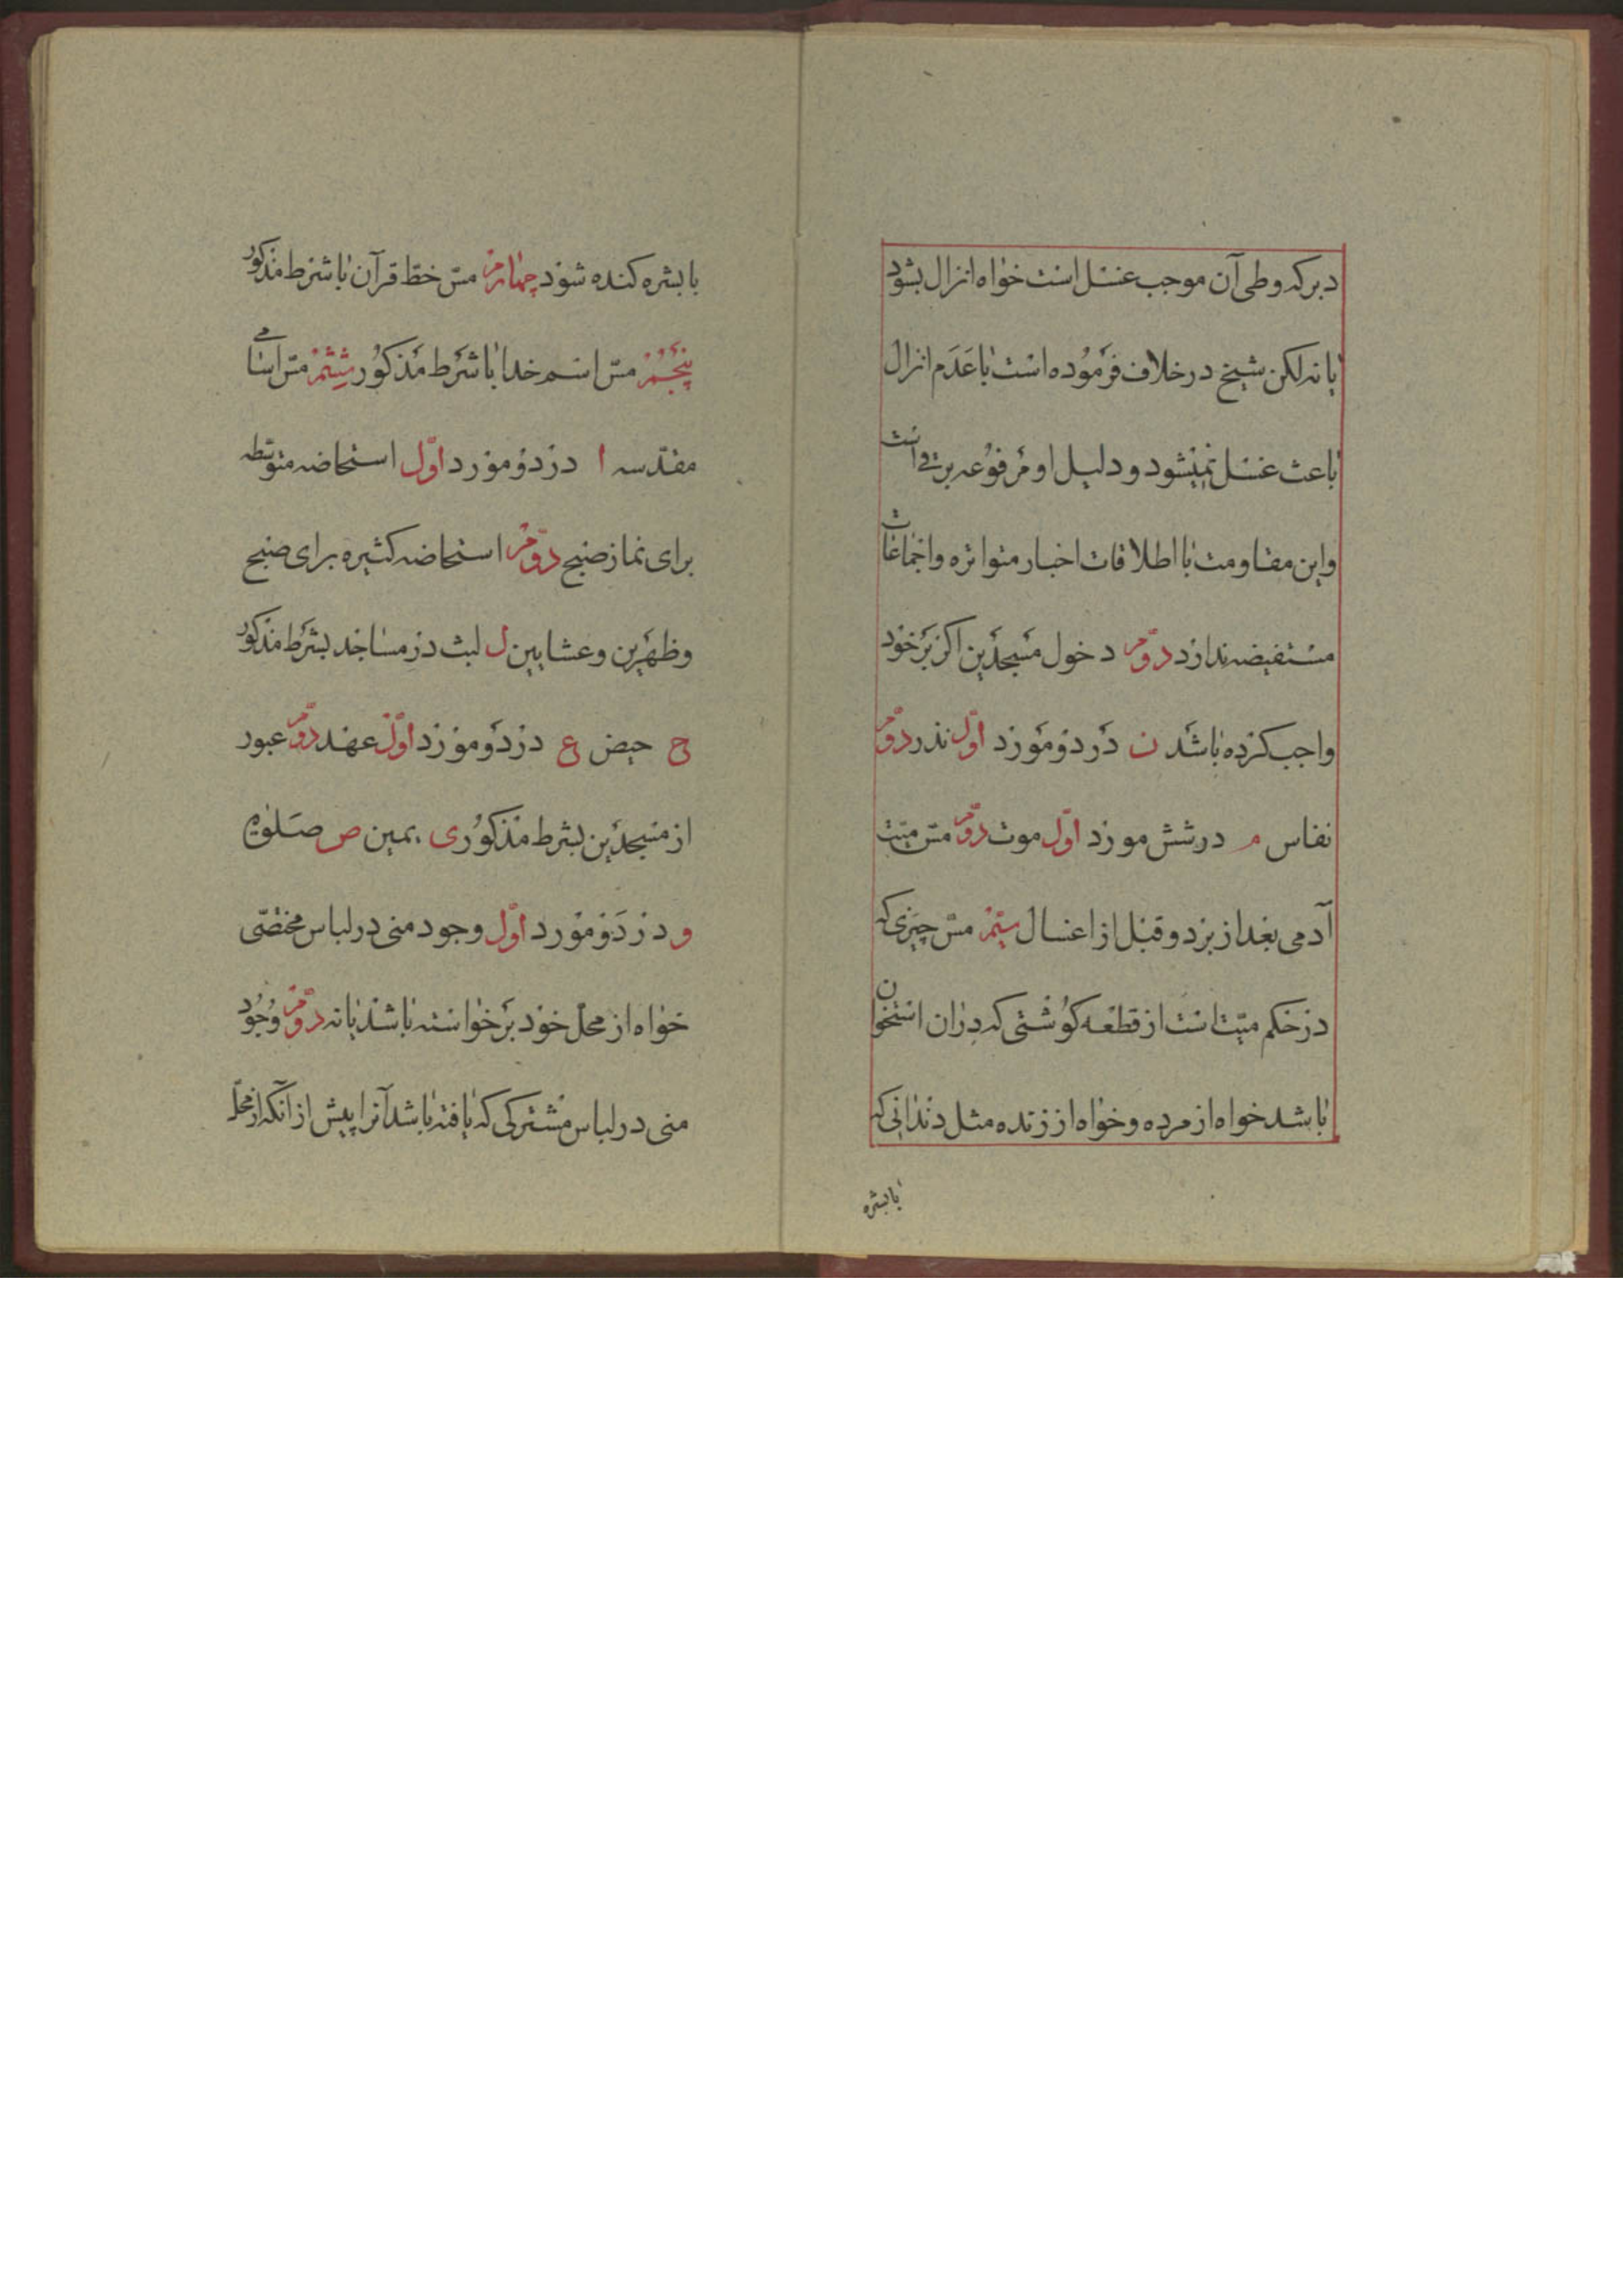 دبر که وطی آن موجب غسل است خواه انزال بشود
یا نه لکن شیخ در خلاف فرموده است با عدم انزال
باعث غسل نمیشود و دلیل او مرفوعه برقی است
و این مقاومت با اطلاقات اخبار متواتره و اجماعات
مستفیضه ندارد دوم دخول مسجدین اکر بر خود
واجب کرده باشد ن در دو مورد اول نذر دوم
نفاس م در شش مورد اول موت دوم مس میت
آدمی بعد از برد و قبل از اغسال سیم مس چیزی که
در حکم میت است از قطعه کوشتی که دران استخوان
باشد خواه از مرده و خواه از زنده مثل دندانی که
با بشره
با بشره کنده شود چهارم مس خط قرآن با شرط مذکور
پنجم مس اسم خدا با شرط مذکور ششم مس اسامی
مقدسه ا در دو مورد اول استحاضه متوسطه
برای نماز صبح دوم استحاضه کثیره برای صبح
و ظهرین و عشایین ل لبث در مساجد بشرط مذکور
ح حیض ع در دو مورد اول عهد دوم عبور
از مسجدین بشرط مذکور ی یمین ص صلوة
و در دو مورد اول وجود منی در لباس مختصی
خواه از محل خود برخواسته باشد یا نه دوم وجود
منی در لباس مشترکی که یافته باشد آنرا پیش از آنکه از محل